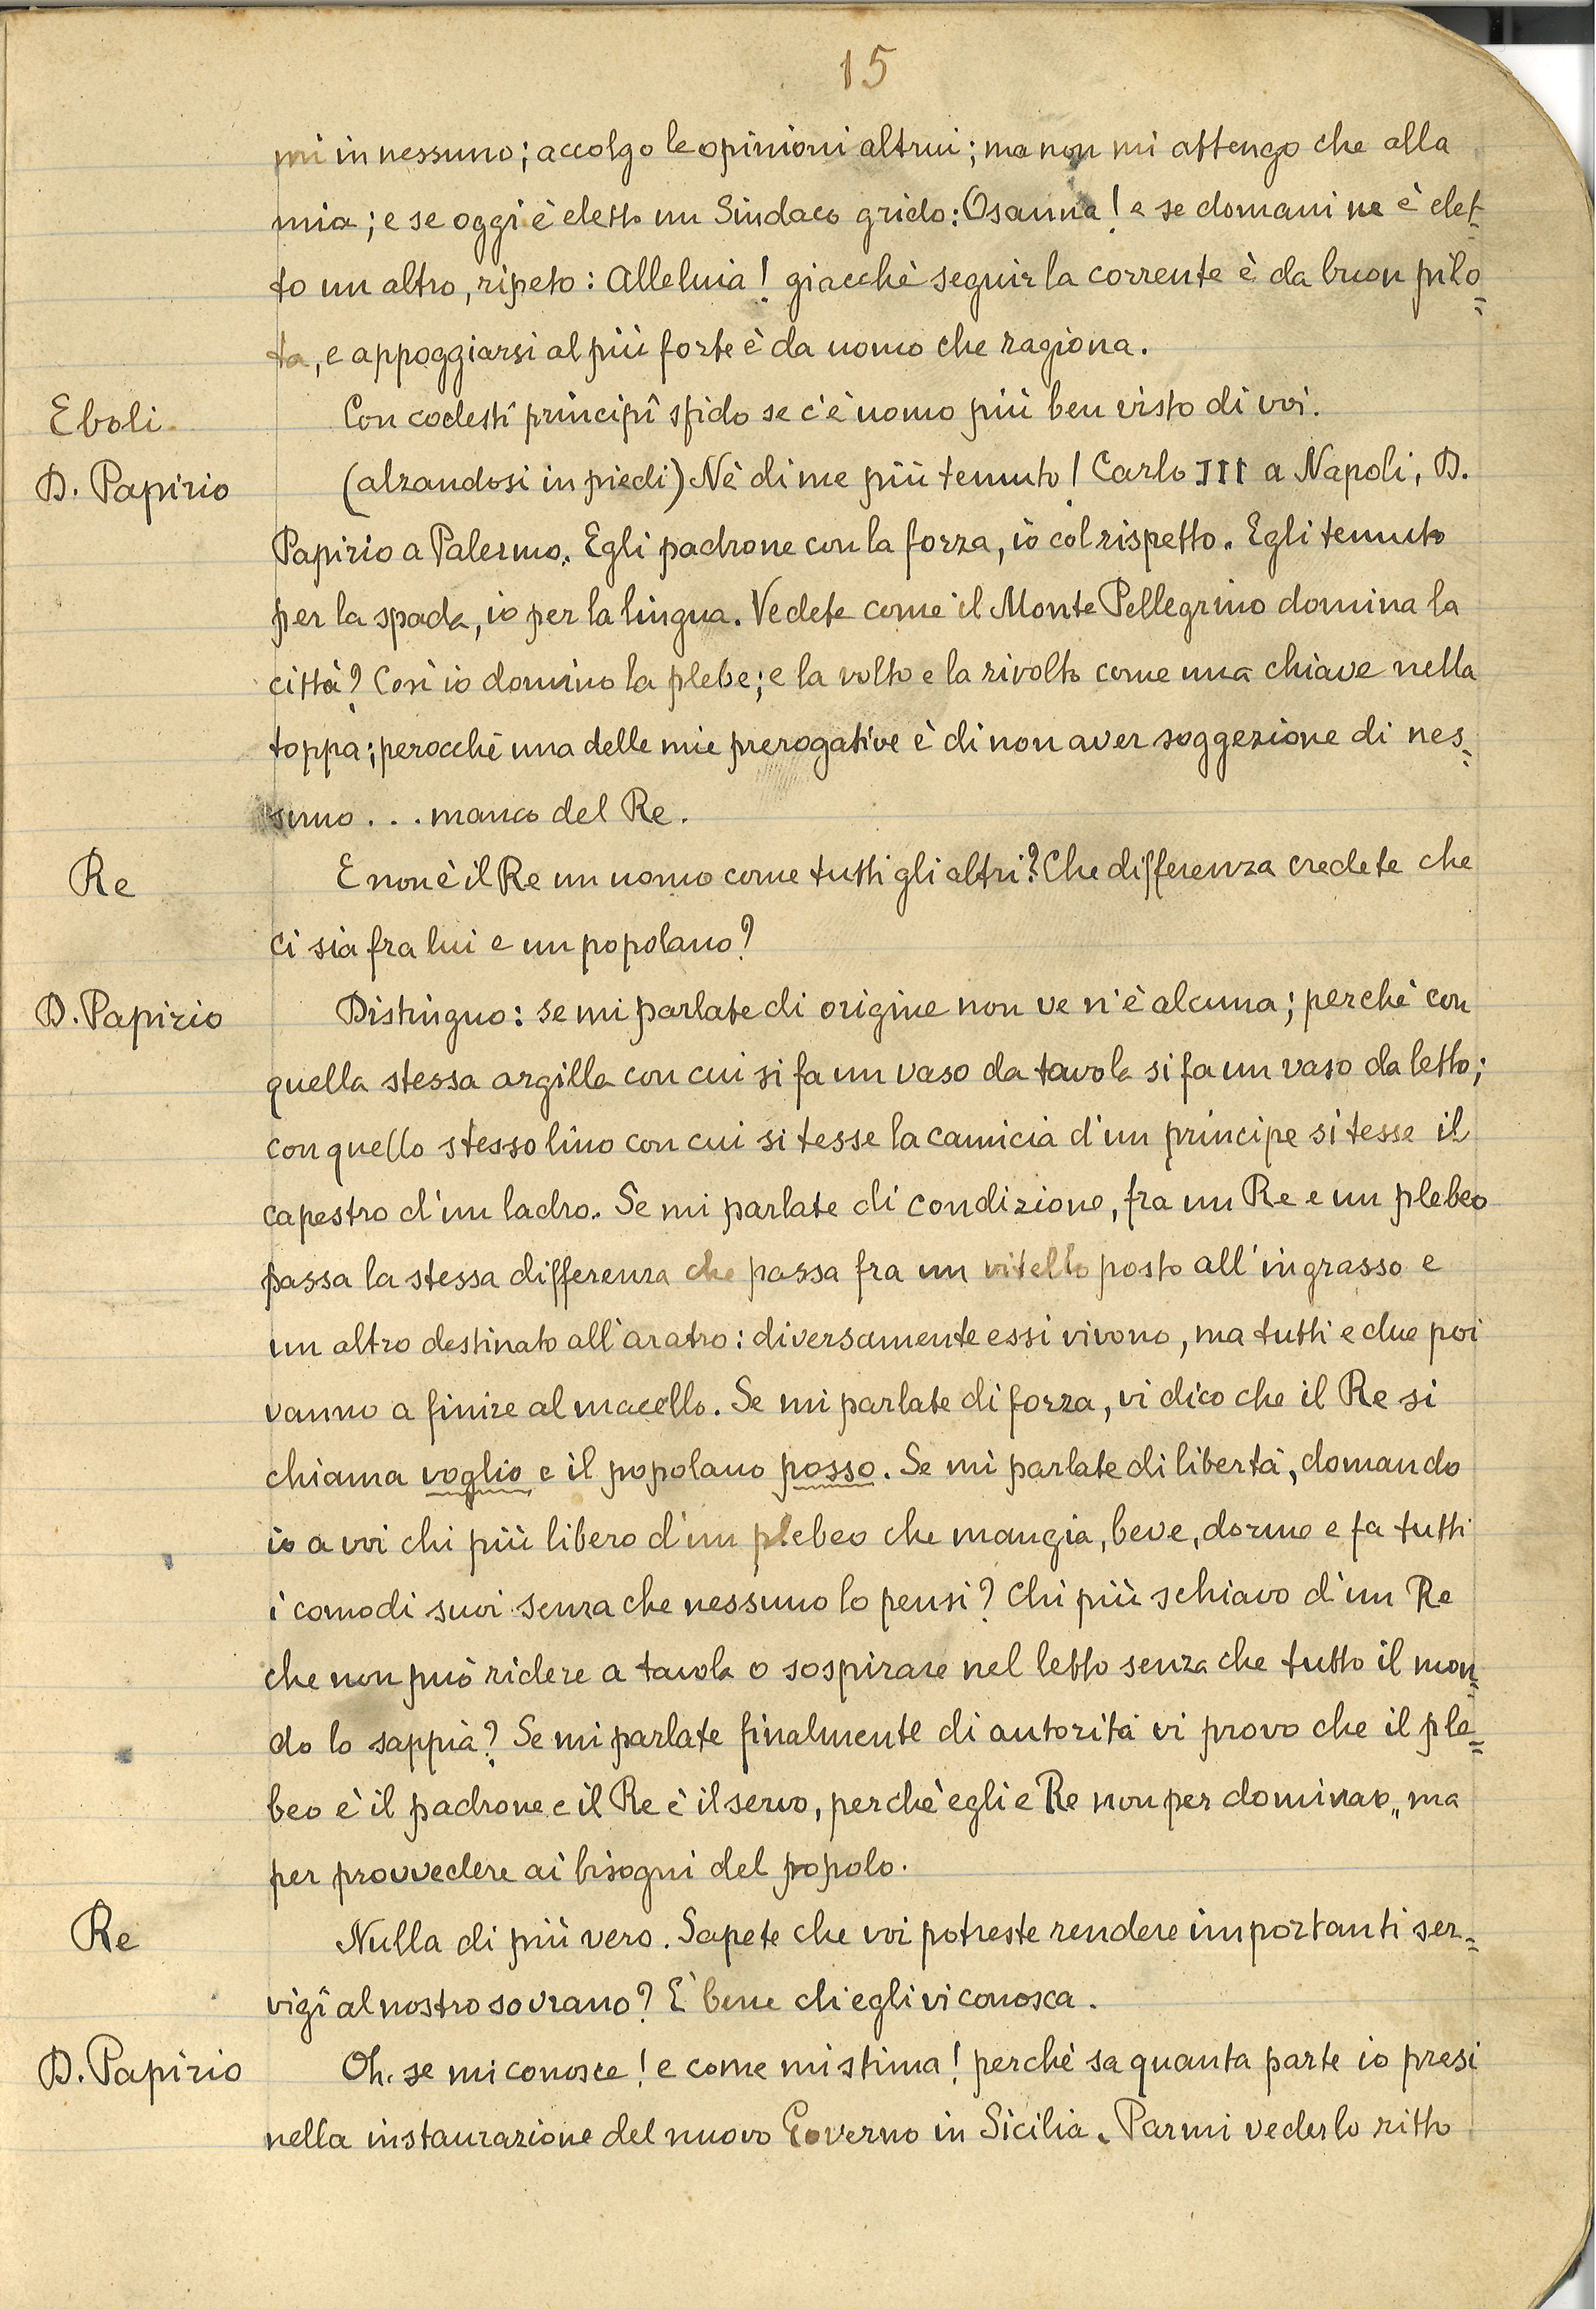 15
mi in nessuno; accolgo le opinioni altrui; ma non mi attengo che alla
mia; e se oggi è eletto un Sindaco grido: Osanna! e se domani ne è elet=
to un altro, ripeto: Alleluia! giacchè seguir la corrente è da buon pilo=
ta, e appoggiarsi al più forte è da uomo che ragiona.
Eboli Con codesti principî sfido se c'è uomo più ben visto di voi.
D. Papirio (alzandosi in piedi) Nè di me più temuto! Carlo III a Napoli, D.
Papirio a Palermo. Egli padrone con la forza, io col rispetto. Egli temuto
per la spada, io per la lingua. Vedete come il Monte Pellegrino domina la
città? Così io domino la plebe; e la volto e la rivolto come una chiave nella
toppa; perocchè una delle mie prerogative è di non aver soggezione di nes=
suno... manco del Re.
Re E non è il Re un uomo come tutti gli altri? Che differenza credete che
ci sia fra lui e un popolano?
D. Papirio Distinguo: se mi parlate di origine non ve n'è alcuna; perchè con
quella stessa argilla con cui si fa un vaso da tavola si fa un vaso da letto;
con quello stesso lino con cui si tesse la camicia d'un principe si tesse il
capestro d'un ladro. Se mi parlate di condizione, fra un Re e un plebeo
passa la stessa differenza che passa fra un vitello posto all'ingrasso e
un altro destinato all'aratro: diversamente essi vivono, ma tutti e due poi
vanno a finire al macello. Se mi parlate di forza, vi dico che il Re si
chiama voglio e il popolano posso. Se mi parlate di libertà, domando
io a voi chi più libero d'un plebeo che mangia, beve, dorme e fa tutti
i comodi suoi senza che nessuno lo pensi? Chi più schiavo d'un Re
che non può ridere a tavola o sospirare nel letto senza che tutto il mon=
do lo sappia? Se mi parlate finalmente di autorità vi provo che il ple=
beo è il padrone e il Re è il servo, perchè egli è Re non per dominare, ma
per provvedere ai bisogni del popolo.
Re Nulla di più vero. Sapete che voi potreste rendere importanti ser=
vigî al nostro sovrano? È bene ch'egli vi conosca.
D. Papirio Oh. se mi conosce! e come mi stima! perchè sa quanta parte io presi
nella instaurazione del nuovo Governo in Sicilia. Parmi vederlo ritto